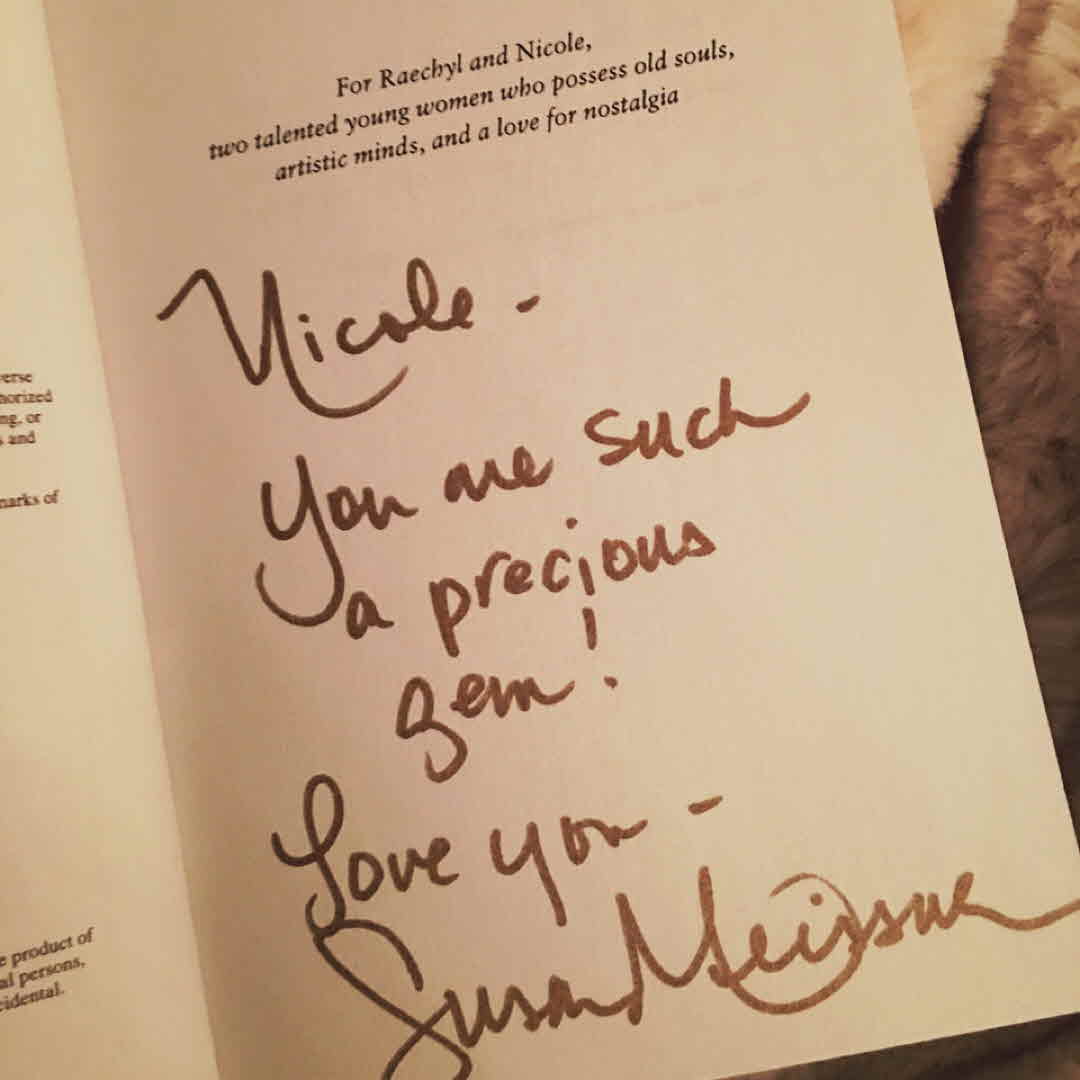 For Raechyl and Nicole,
two talented young women who possess old souls,
artistic minds, and a love for nostalgia
Nicole -
You are such
a precious
gem!
Love you -
Susan Meissner
erse
horized
ng, or
s and
marks of
e product of
al persons,
cidental.